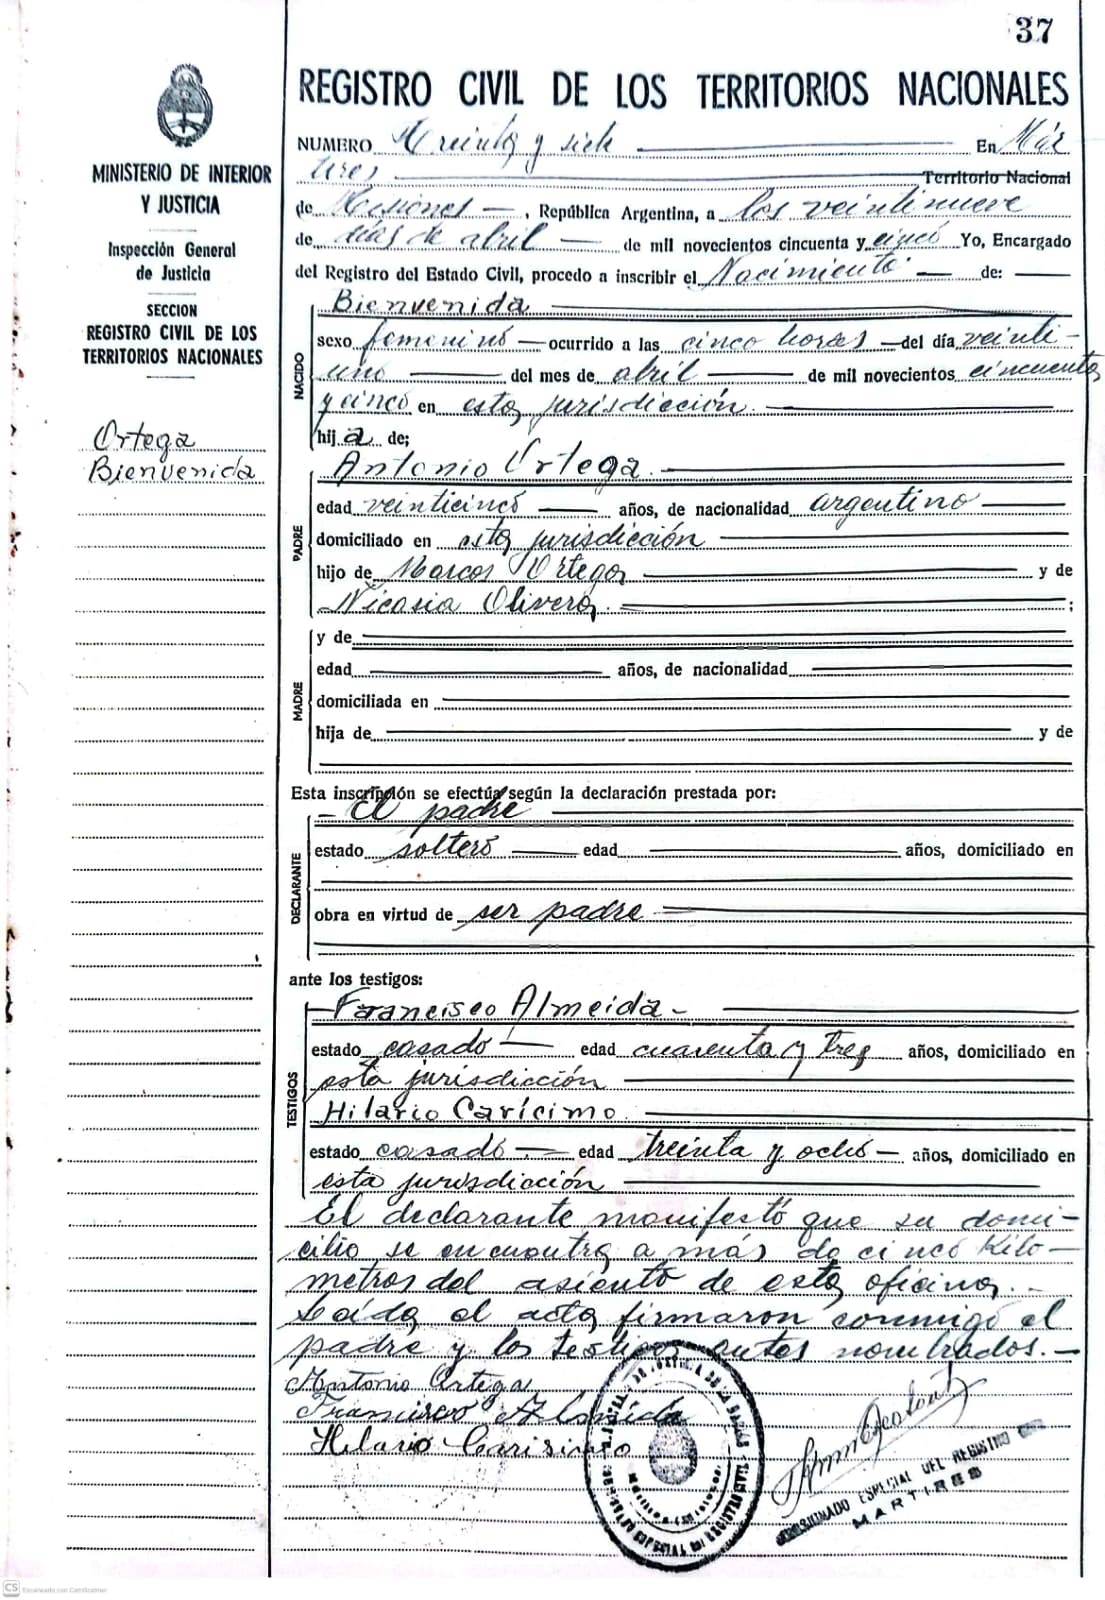 37
REGISTRO CIVIL DE LOS TERRITORIOS NACIONALES
MINISTERIO DE INTERIOR
Y JUSTICIA
Inspección General
de Justicia
SECCION
REGISTRO CIVIL DE LOS
TERRITORIOS NACIONALES
Ortega
Bienvenida
NUMERO Treinta y siete En Már
tires Territorio Nacional
de Misiones, República Argentina, a los veintinueve
de días de abril de mil novecientos cincuenta y cinco Yo, Encargado
del Registro del Estado Civil, procedo a inscribir el Nacimiento de:
NACIDO
Bienvenida
sexo femenino ocurrido a las cinco horas del día veinti-
uno del mes de abril de mil novecientos cincuenta
y cinco en esta jurisdicción.
hija de;
PADRE
Antonio Ortega.
edad veinticinco años, de nacionalidad argentino
domiciliado en esta jurisdicción
hijo de Marcos Ortega y de
Nicasia Olivera. ;
MADRE
y de
edad años, de nacionalidad
domiciliada en
hija de y de
Esta inscripción se efectúa según la declaración prestada por:
DECLARANTE
- El padre
estado soltero edad años, domiciliado en
obra en virtud de ser padre
ante los testigos:
TESTIGOS
Francisco Almeida-
estado casado edad cuarenta y tres años, domiciliado en
esta jurisdicción
Hilario Carícimo.
estado casado edad treinta y ocho - años, domiciliado en
esta jurisdicción
El declarante manifestó que su domi-
cilio se encuentra a más de cinco Kiló-
metros del asiento de esta oficina.-
Leída el acta firmaron conmigo el
padre y los testigos antes nombrados.-
Antonio Ortega
Francisco Almeida
Hilario Carisimo
ESPECIAL DEL REGISTRO
MARTIRES
CS Escaneado con CamScanner